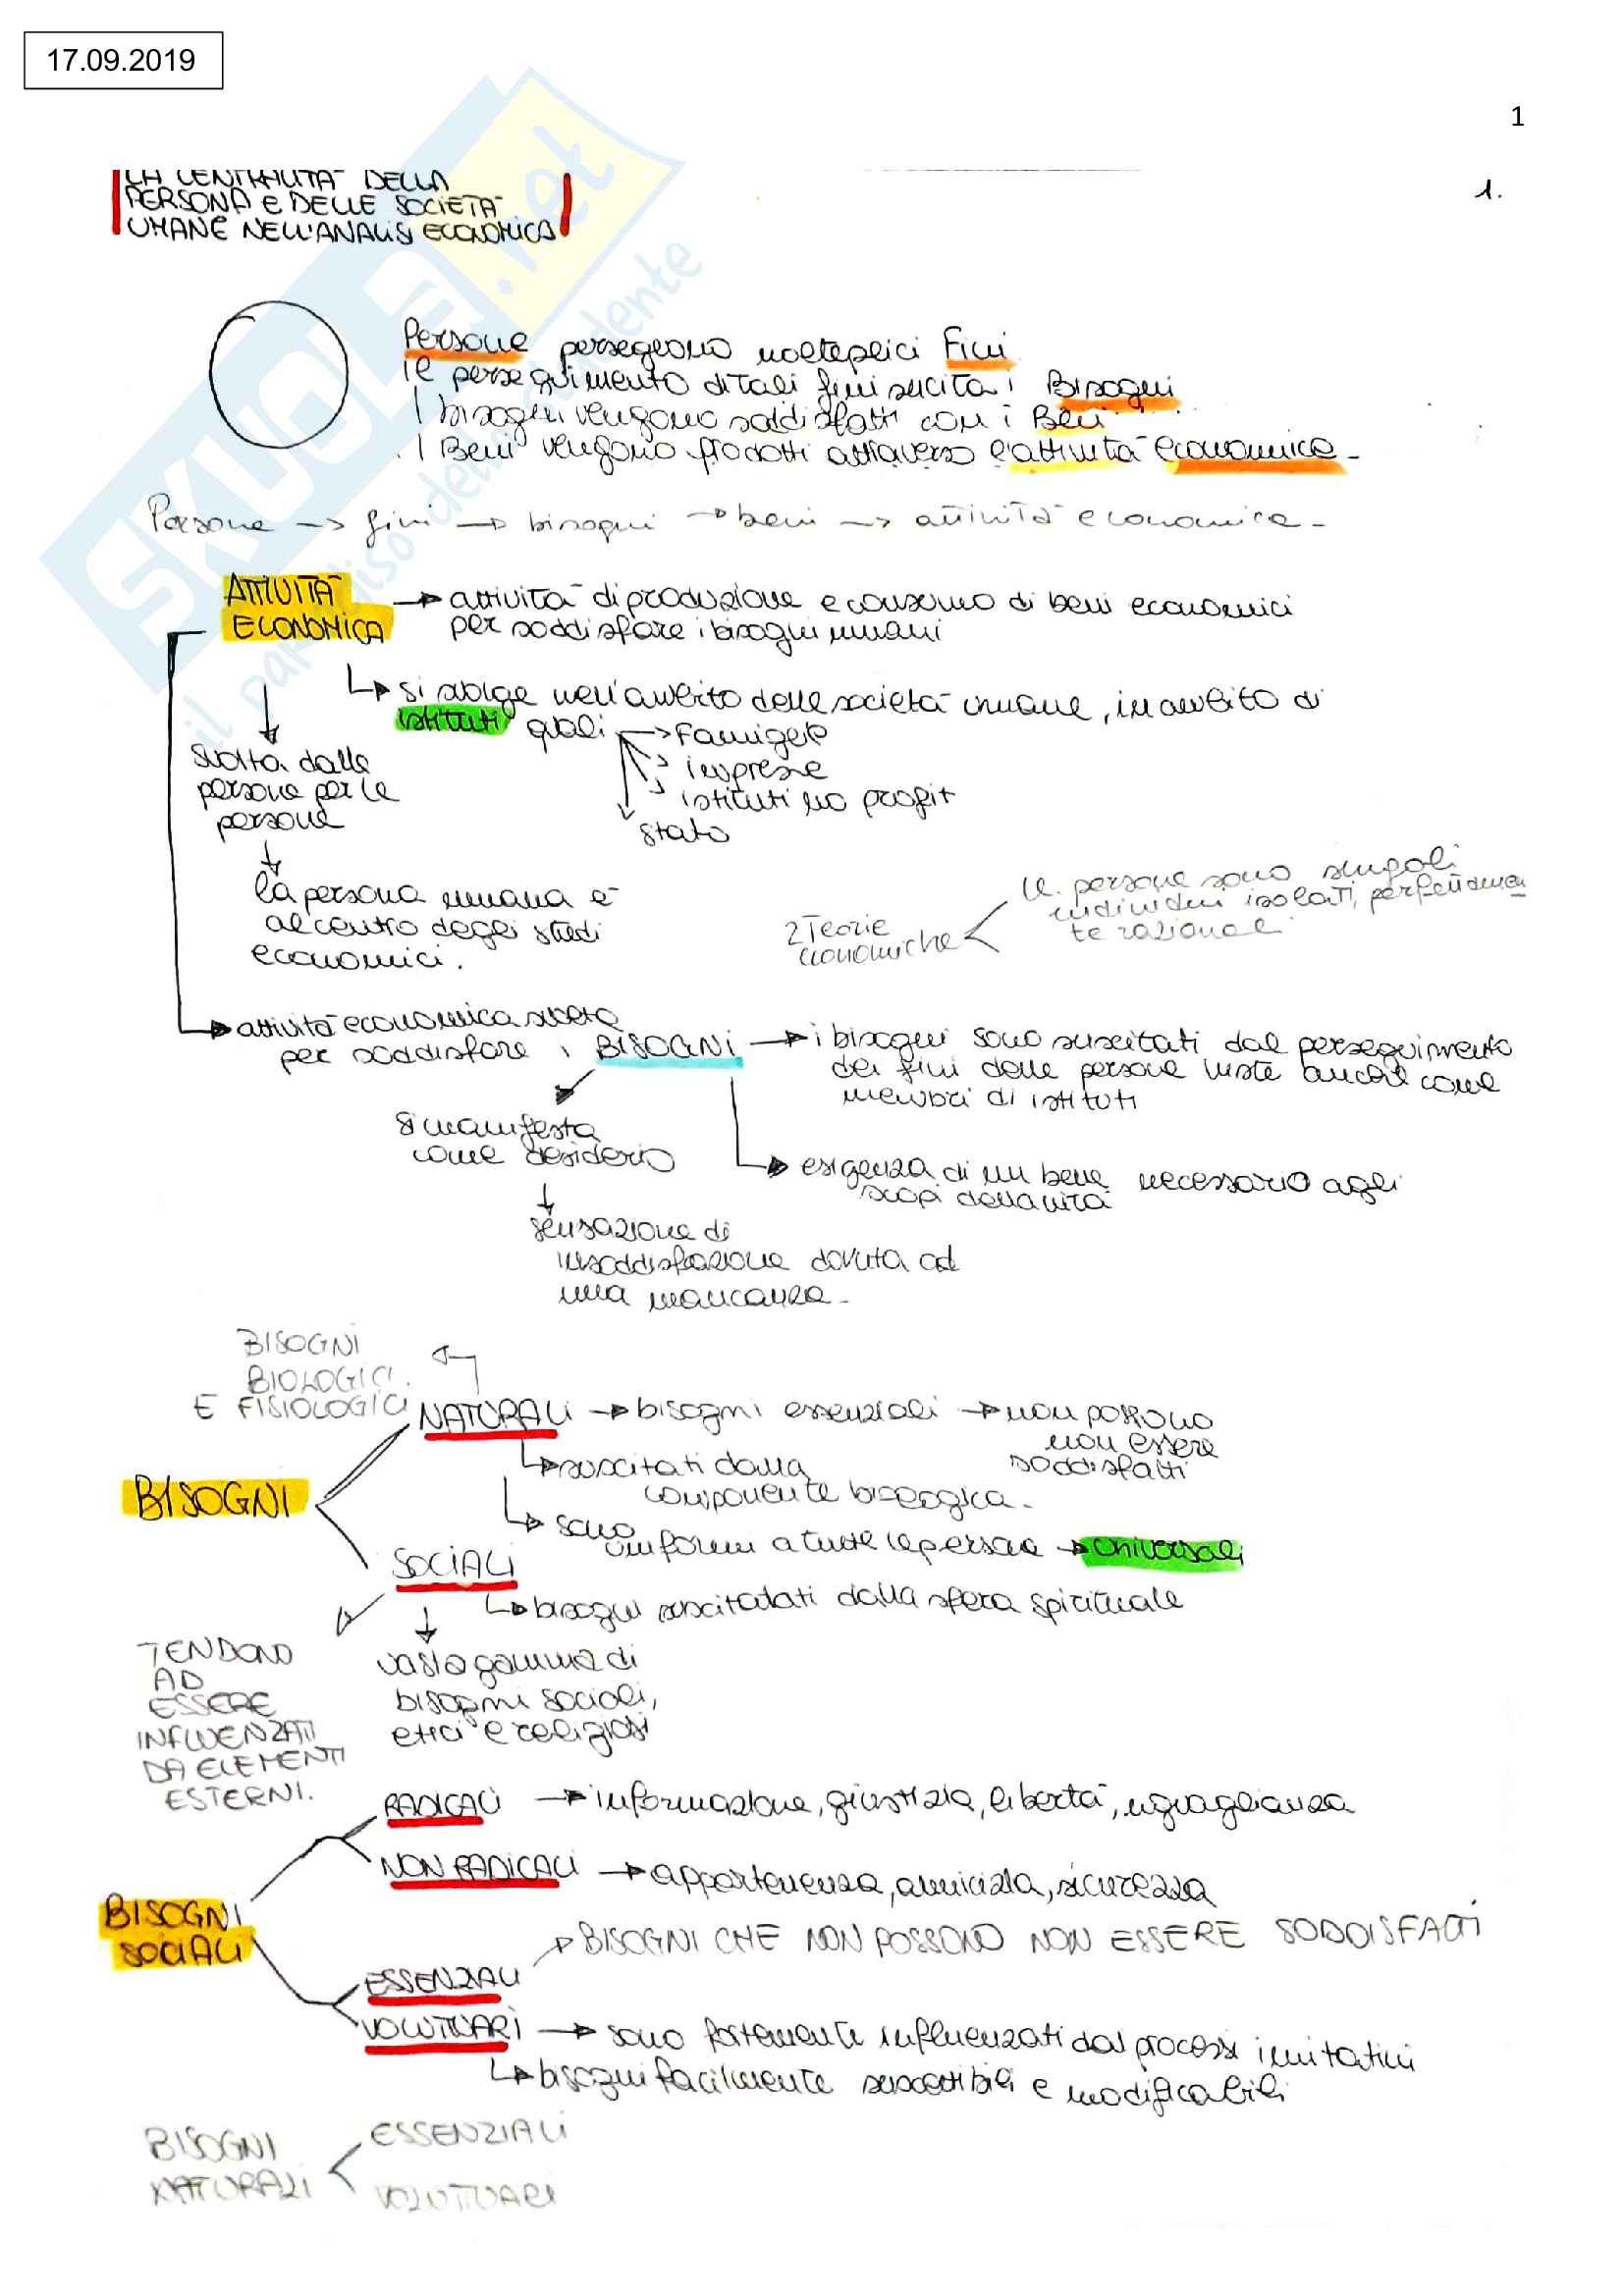 17.09.2019
1
1.
LA CENTRALITÀ DELLA
PERSONA e DELLE SOCIETÀ
UMANE NELL'ANALISI ECONOMICA
SKUOLA.net
il paradiso dello studente
Persone perseguono molteplici Fini
il perseguimento di tali fini suscita i Bisogni
I bisogni vengono soddisfatti con i Beni
I Beni vengono prodotti attraverso l'attività economica -
Persone -> fini -> bisogni -> beni -> attività economica -
ATTIVITÀ
ECONOMICA
-> attività di produzione e consumo di beni economici
per soddisfare i bisogni umani
si svolge nell'ambito delle società umane, in ambito di
istituti quali -> Famiglie
imprese
istituti no profit
stato
svolta dalle
persone per le
persone
la persona umana è
al centro degli studi
economici.
2 Teorie
economiche
le persone sono singoli
individui isolati, perfettamen
te razionale
attività economica svolta
per soddisfare i BISOGNI
-> i bisogni sono suscitati dal perseguimento
dei fini delle persone viste anche come
membri di istituti
si manifesta
come desiderio
esigenza di un bene necessario agli
scopi della vita
sensazione di
insoddisfazione dovuta ad
una mancanza -
BISOGNI
BIOLOGICI
E FISIOLOGICI
NATURALI -> bisogni essenziali -> non possono
non essere
soddisfatti
suscitati dalla
componente biologica -
sono
uniformi a tutte le persone -> universali
BISOGNI
SOCIALI
bisogni suscitatati dalla sfera spirituale
TENDONO
AD
ESSERE
INFLUENZATI
DA ELEMENTI
ESTERNI.
vasta gamma di
bisogni sociali,
etici e religiosi
RADICALI -> informazione, giustizia, libertà, uguaglianza
NON RADICALI -> appartenenza, amicizia, sicurezza
BISOGNI
SOCIALI
BISOGNI CHE NON POSSONO NON ESSERE SODDISFATTI
ESSENZIALI
VOLUTTUARI -> sono fortemente influenzati dai processi imitativi
bisogni facilmente suscettibili e modificabili
BISOGNI
NATURALI
ESSENZIALI
VOLUTTUARI